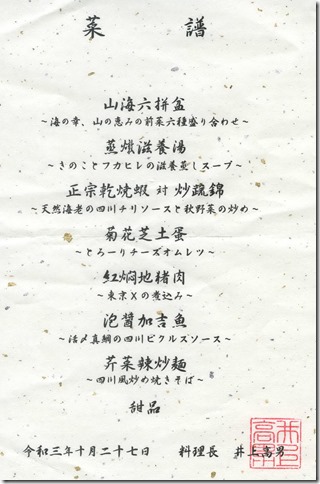 菜譜
山海六拼盆
~海の幸、山の恵みの前菜六種盛り合わせ~
蒸燉滋養湯
~きのことフカヒレの滋養蒸しスープ~
正宗乾焼蝦 対 炒蔬錦
~天然海老の四川チリソースと秋野菜の炒め~
菊花芝士蛋
~とろーりチーズオムレツ~
紅焖地猪肉
~東京Xの煮込み~
泡醤加吉魚
~活〆真鯛の四川ピクルスソース~
芹菜辣炒麺
~四川風炒め焼きそば~
甜品
令和三年十月二十七日 料理長 井上高男